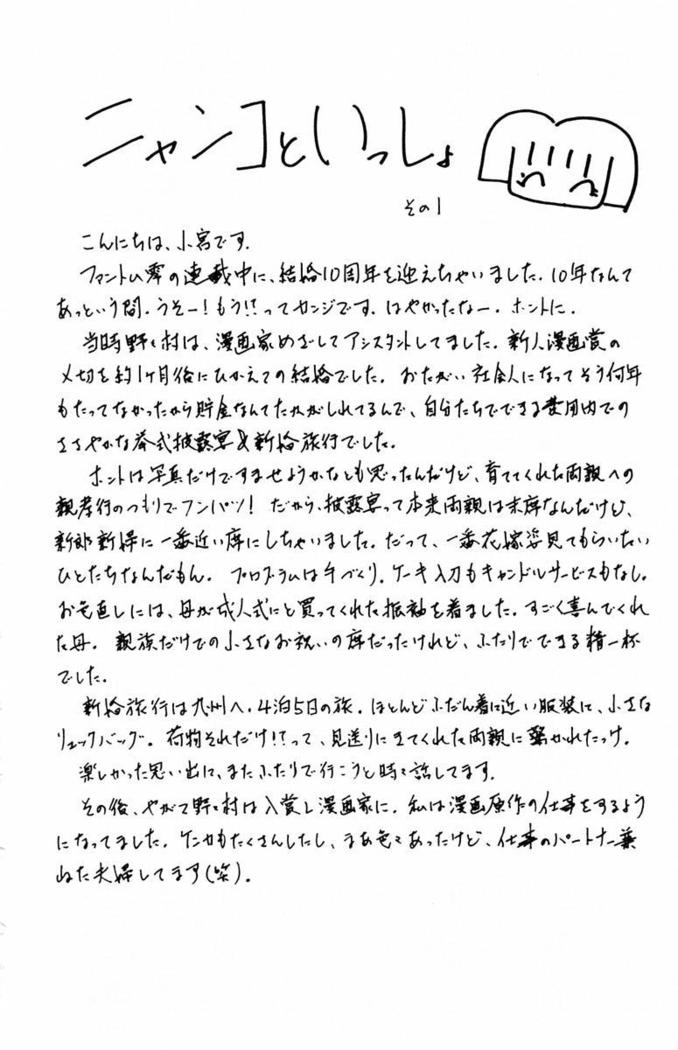 ニャンコといっしょ
その1
こんにちは、小宮です.
ファントム零の連載中に、結婚10周年を迎えちゃいました. 10年なんて
あっという間. うそー! もう!?ってカンジです. はやかったなー. ホントに.
当時野々村は、漫画家めざしてアシスタントしてました. 新人漫画賞の
〆切を約1ヶ月後にひかえての結婚でした. おたがい社会人になってそう何年
もたってなかったから貯金なんてたかがしれてるんで、自分たちでできる費用内での
ささやかな挙式披露宴&新婚旅行でした.
ホントは写真だけですませようかなとも思ったんだけど、育ててくれた両親への
親孝行のつもりでフンパツ! だから、披露宴って本来両親は末席なんだけど、
新郎新婦に一番近い席にしちゃいました. だって、一番花嫁姿見てもらいたい
ひとたちなんだもん. プログラムは手づくり. ケーキ入刀もキャンドルサービスもなし.
お色直しには、母が成人式にと買ってくれた振袖を着ました. すごく喜んでくれ
た母. 親族だけでの小さなお祝いの席だったけれど、ふたりでできる精一杯
でした.
新婚旅行は九州へ. 4泊5日の旅. ほとんどふだん着に近い服装に、小さな
リュックバッグ. 荷物それだけ!?って、見送りにきてくれた両親に驚かれたっけ.
楽しかった思い出に、またふたりで行こうと時々話してます.
その後、やがて野々村は入賞し漫画家に. 私は漫画原作の仕事をするよう
になってました. ケンカもたくさんしたし、まあ色々あったけど、仕事のパートナー兼
ねた夫婦してます(笑).